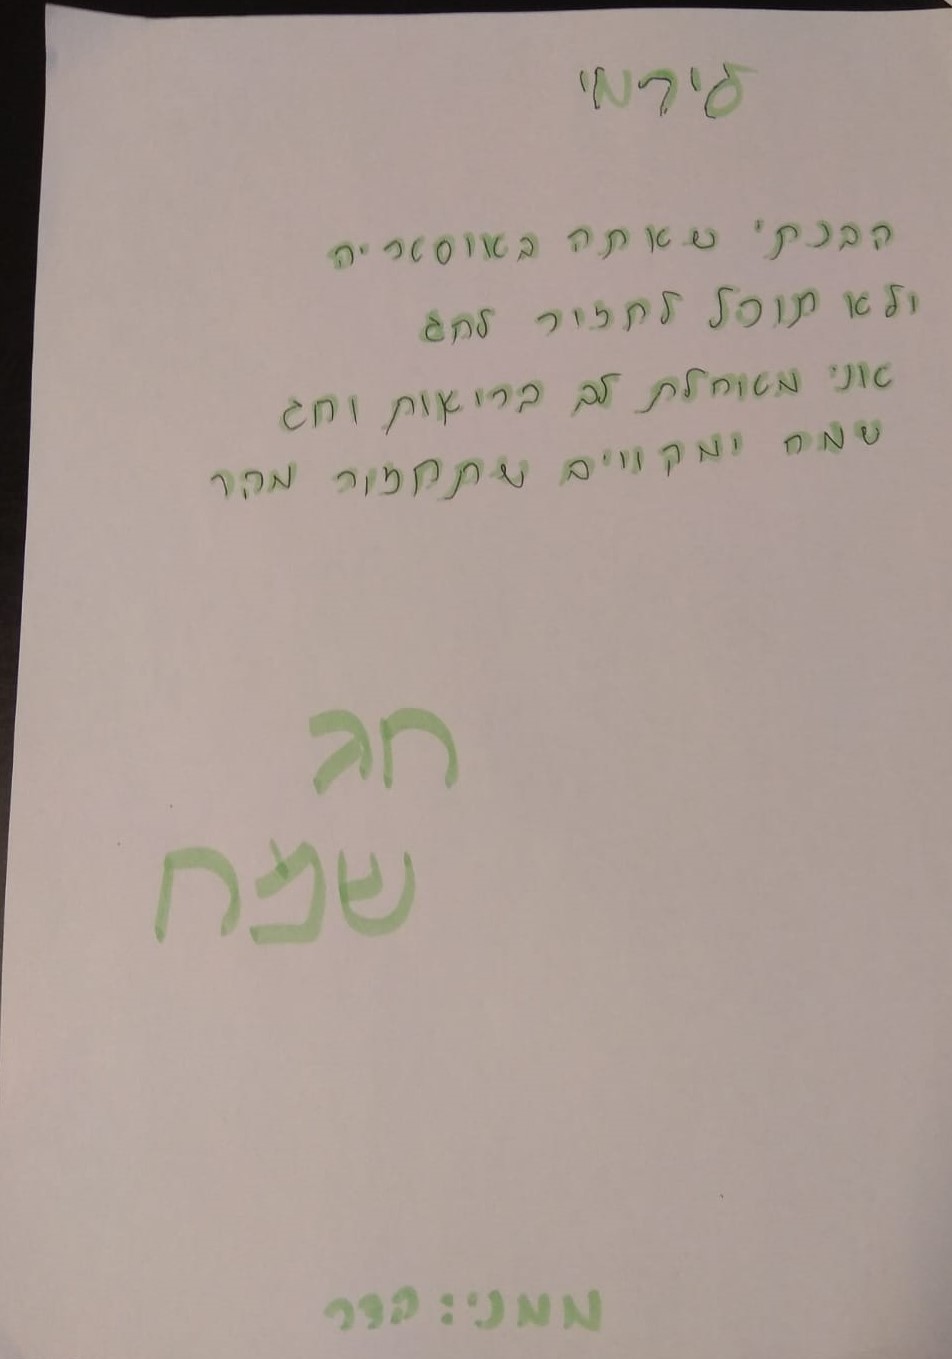 לירמי
הבנתי שאתה באוסטריה
ולא תוכל לחזיר לחג
אני מאוחלת לך בריאות וחג
שמח ומקווים שתחזור מהר
חג
שמח
ממני: הדר